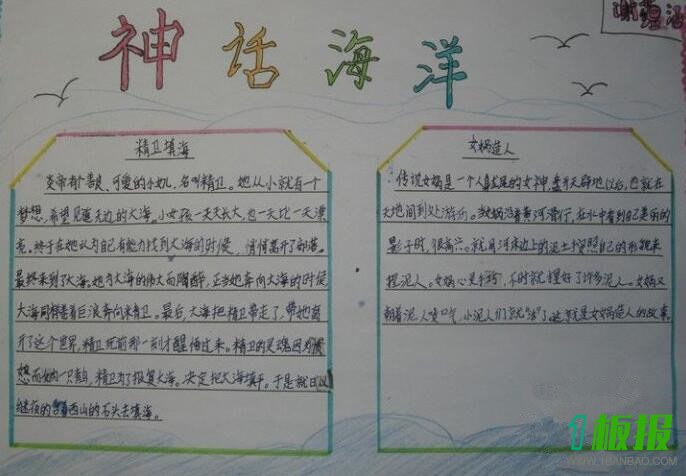 神话海洋
精卫填海
炎帝有个善良、可爱的小女儿,名叫精卫。她从小就有一个
梦想,希望见遍无边的大海。小女孩一天天长大,也一天比一天漂
亮。终于在她认为自己有能力找到大海的时候,悄悄离开了部落。
最终来到了大海,她为大海的伟大而陶醉,正当她奔向大海的时候
大海同样卷着巨浪奔向来精卫。最后,大海把精卫带走了,带她离
开了这个世界,精卫死前那一刻才醒悟过来。精卫的灵魂因
想而 一只鸟,精卫为了报复大海。决定把大海填平。于是就日以
继夜的 西山的石头去填海。
女娲造人
传说女娲是一个人首龙尾的女神,盘古开天辟地以后,她就在
天地间到处游历。 女娲沿着黄河滑行,在水中看到自己美丽的
影子时,很高兴。就用河床边上的泥土按照自己的形貌来
捏泥人。女娲心灵手巧,不时就捏好了许多泥人。女娲又
朝着泥人吹口气,小泥人们就“活”了。这就是女娲造人的故事。
板报
WWW.1BANBAO.COM